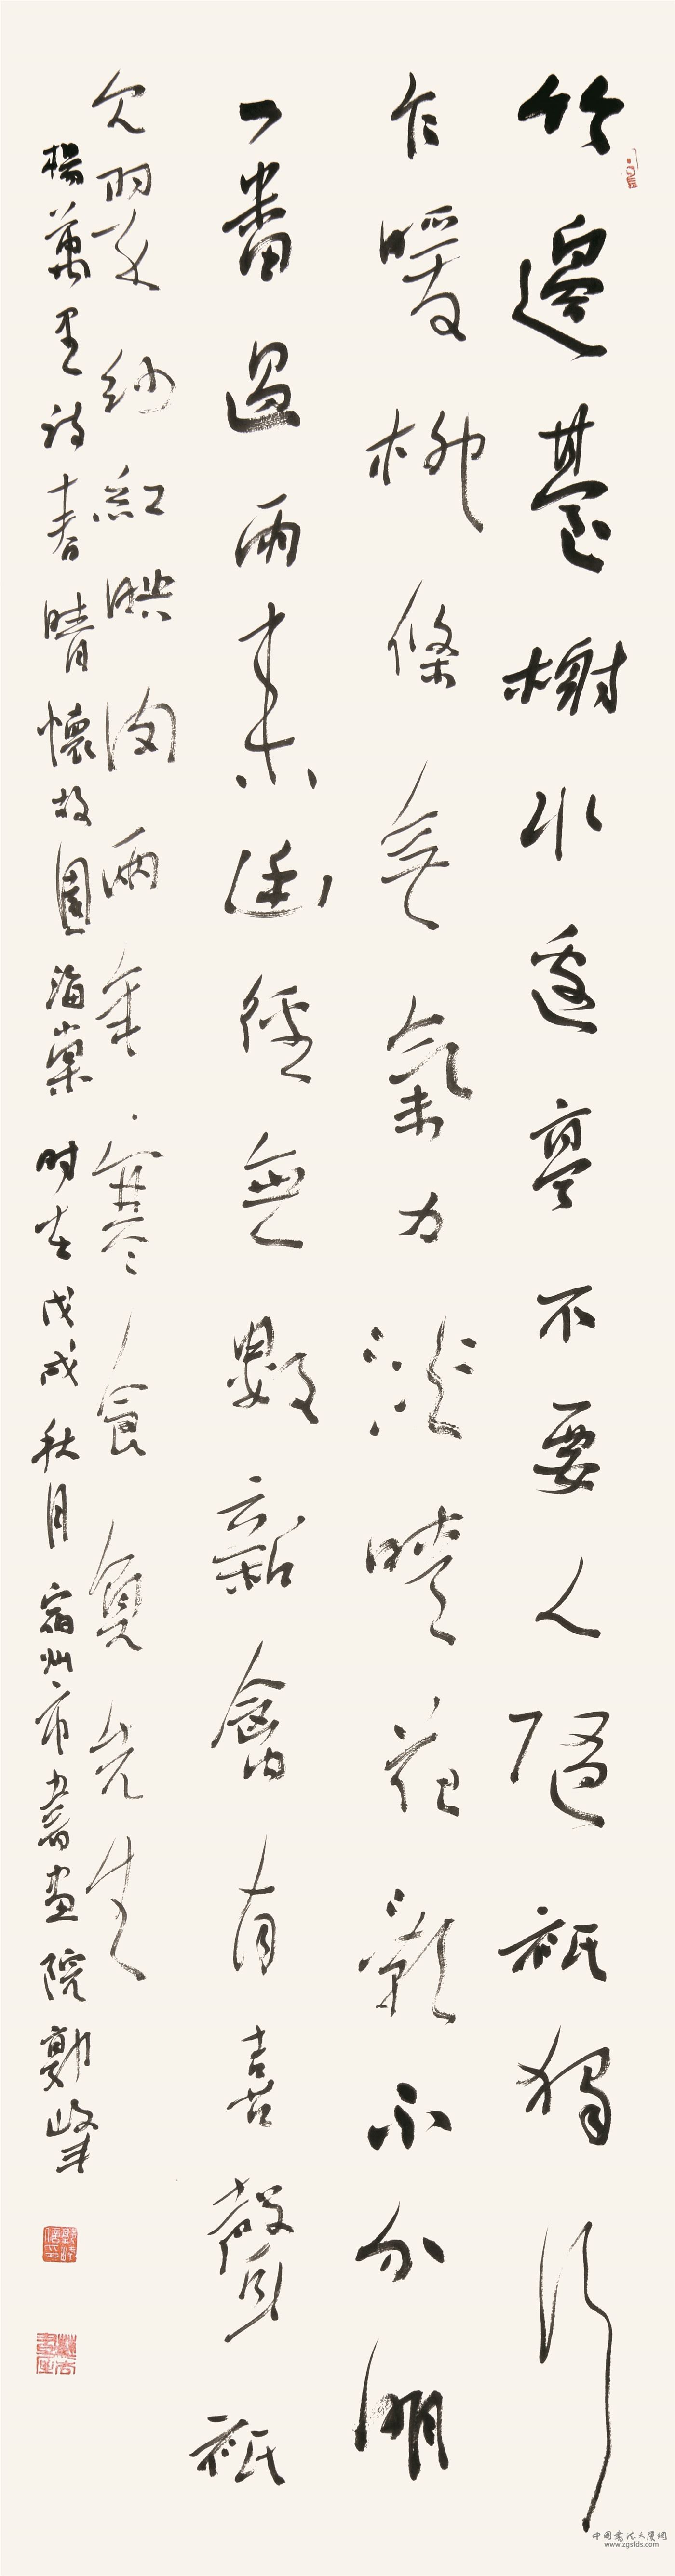 竹邊臺榭水邊亭不要人隨祇獨行
乍暖柳條無氣力淡晴花影不分明
一番過雨來幽徑無數新禽有喜聲祇
欠翠紗紅映肉兩年寒食負先生
楊萬里詩春晴懷故園海棠 时在戊戌秋月 宿州市書畫院 鄭峰
中国書法大廈網
www.zgsfds.com